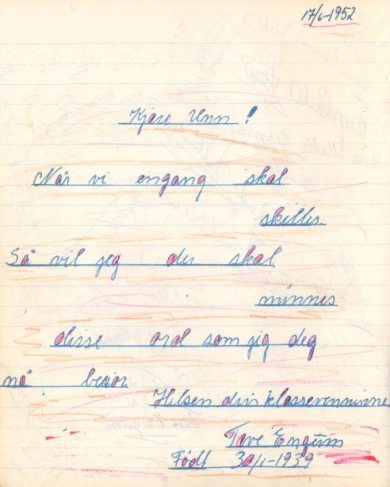 17/6-1952
Kjære Unn!
Når vi engang skal
skilles
Så vil jeg du skal
minnes
disse ord som jeg deg
nå
Hilsen din klassevenninne
Tove Engum
Født 30/1-1939